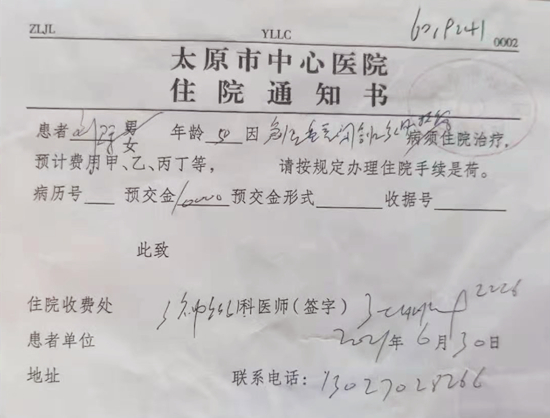 ZLJL YLLC 0002
6019241
太原市中心医院
住院通知书
患者 男 女 年龄 因 病须住院治疗,
预计费用甲、乙、丙丁等, 请按规定办理住院手续是荷。
病历号 预交金 10000 预交金形式 收据号
此致
住院收费处 科医师(签字) 2226
患者单位 2021年6月30日
地址 联系电话: 13027028266